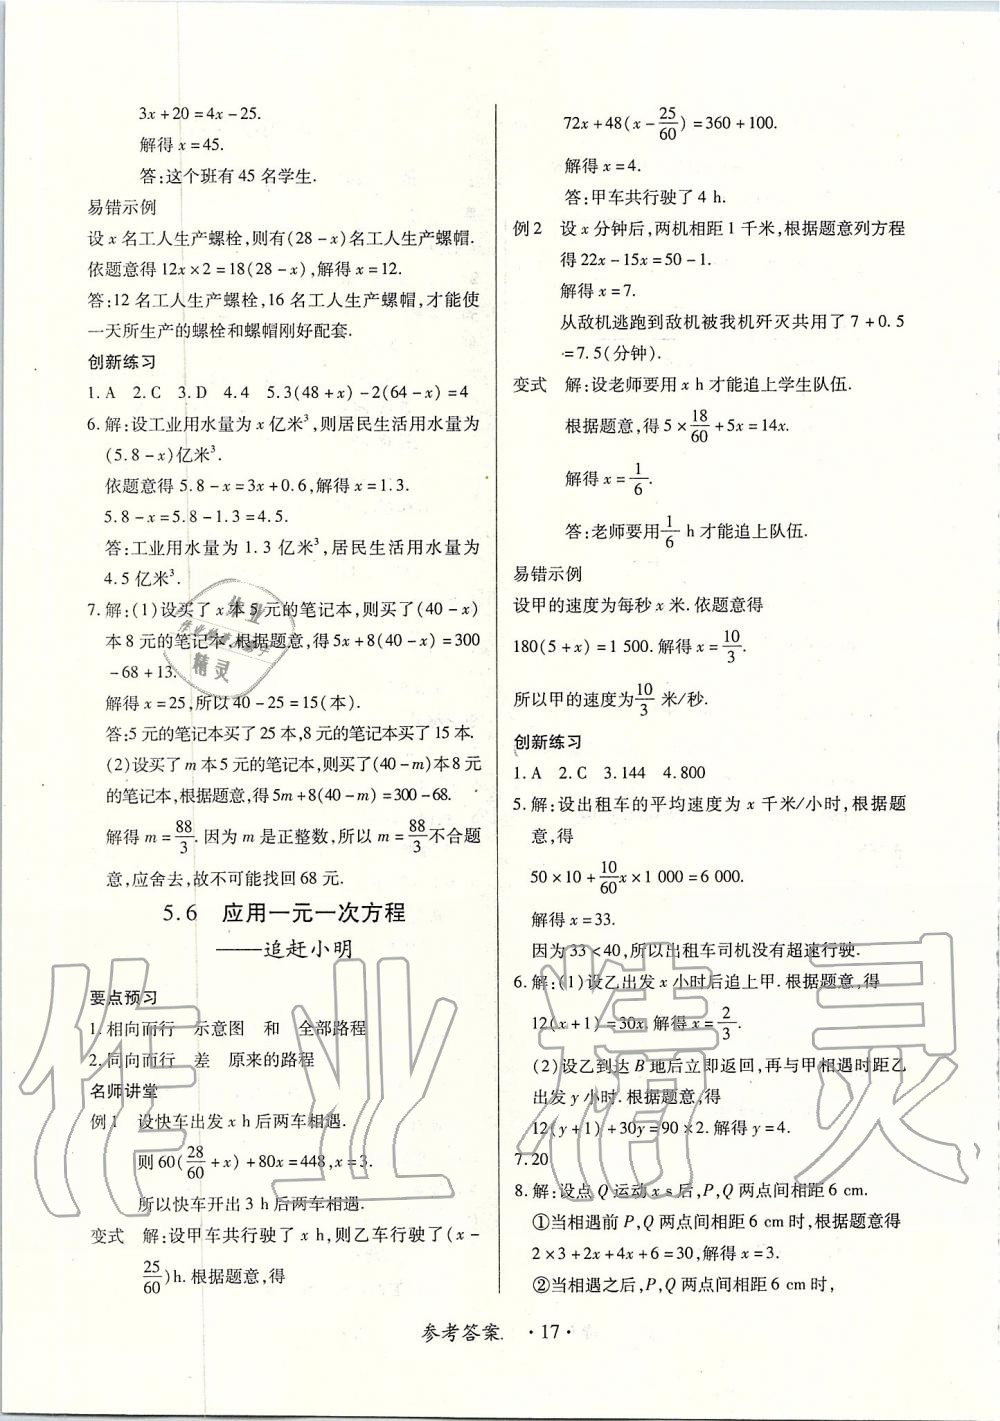 3x+20=4x-25.
解得 x=45.
答:这个班有 45 名学生.
易错示例
设 x 名工人生产螺栓,则有(28-x)名工人生产螺帽.
依题意得 12x×2=18(28-x),解得 x=12.
答:12 名工人生产螺栓,16 名工人生产螺帽,才能使
一天所生产的螺栓和螺帽刚好配套.
创新练习
1.A 2.C 3.D 4.4 5.3(48+x)-2(64-x)=4
6.解:设工业用水量为 x 亿米³,则居民生活用水量为
(5.8-x)亿米³.
依题意得 5.8-x=3x+0.6,解得 x=1.3.
5.8-x=5.8-1.3=4.5.
答:工业用水量为 1.3 亿米³,居民生活用水量为
4.5亿米³.
7.解:(1)设买了 x 本 5 元的笔记本,则买了(40-x)
本 8 元的笔记本.根据题意,得 5x+8(40-x)=300
-68+13.
解得 x=25,所以 40-25=15(本).
答:5 元的笔记本买了 25 本,8 元的笔记本买了 15 本.
(2)设买了 m 本 5 元的笔记本,则买了(40-m)本 8 元
的笔记本,根据题意,得 5m+8(40-m)=300-68.
解得 m=88/3.因为 m 是正整数,所以 m=88/3不合题
意,应舍去,故不可能找回 68 元.
5.6 应用一元一次方程
——追赶小明
要点预习
1.相向而行 示意图 和 全部路程
2.同向而行 差 原来的路程
名师讲堂
例1 设快车出发 x h 后两车相遇.
则 60(28/60+x)+80x=448,x=3.
所以快车开出 3 h 后两车相遇.
变式 解:设甲车共行驶了 x h,则乙车行驶了(x-
25/60)h.根据题意,得
72x+48(x-25/60)=360+100.
解得 x=4.
答:甲车共行驶了 4 h.
例2 设 x 分钟后,两机相距 1 千米,根据题意列方程
得 22x-15x=50-1.
解得 x=7.
从敌机逃跑到敌机被我机歼灭共用了 7+0.5
=7.5(分钟).
变式 解:设老师要用 x h 才能追上学生队伍.
根据题意,得 5×18/60+5x=14x.
解得 x=1/6.
答:老师要用1/6 h 才能追上队伍.
易错示例
设甲的速度为每秒 x 米.依题意得
180(5+x)=1 500.解得 x=10/3.
所以甲的速度为10/3 米/秒.
创新练习
1.A 2.C 3.144 4.800
5.解:设出租车的平均速度为 x 千米/小时,根据题
意,得
50×10+10/60x×1 000=6 000.
解得 x=33.
因为 33<40,所以出租车司机没有超速行驶.
6.解:(1)设乙出发 x 小时后追上甲.根据题意,得
12(x+1)=30x.解得 x=2/3.
(2)设乙到达 B 地后立即返回,再与甲相遇时距乙
出发 y 小时.根据题意,得
12(y+1)+30y=90×2.解得 y=4.
7.20
8.解:设点 Q 运动 x s 后,P,Q 两点间相距 6 cm.
①当相遇前 P,Q 两点间相距 6 cm 时,根据题意得
2×3+2x+4x+6=30,解得 x=3.
②当相遇之后,P,Q 两点间相距 6 cm 时,
参考答案 ·17·
作业精灵
作业
精灵